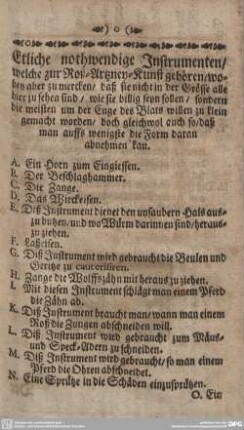 o
Etliche nothwendige Instrumenten/
welche zur Roß-Artzney-Kunst gehören/wo-
bey aber zu mercken/ daß sie nicht in der Grösse alle
hier zu sehen sind/ wie sie billig seyn sollen/ sondern
die meisten um der Enge des Blats willen zu klein
gemacht worden/ doch gleichwol auch so/daß
man auffs wenigste die Form daran
abnehmen kan.
A. Ein Horn zum Eingiessen.
B. Der Beschlaghammer.
C. Die Zange.
D. Das Wirckeisen.
E. Diß Instrument dienet den unsaubern Hals aus-
zubutzen/und wo Würm darinnen sind/heraus-
zuziehen.
F. Laßeisen.
G. Diß Instrument wird gebraucht die Beulen und
zu
H. Zange die Wolffszähn mit heraus zu ziehen.
I. Mit diesen Instrument schlägt man einem Pferd
die Zähn ab.
K. Diß Instrument braucht man/wann man einem
Roß die Zungen abschneiden will.
L. Diß Instrument wird gebraucht zum Mäus-
und Speck-Adern zu schneiden.
M. Diß Instrument wird gebraucht/so man einem
Pferd die Ohren abschneidet.
N. Eine Sprütze in die Schäden einzusprützen.
O. Ein